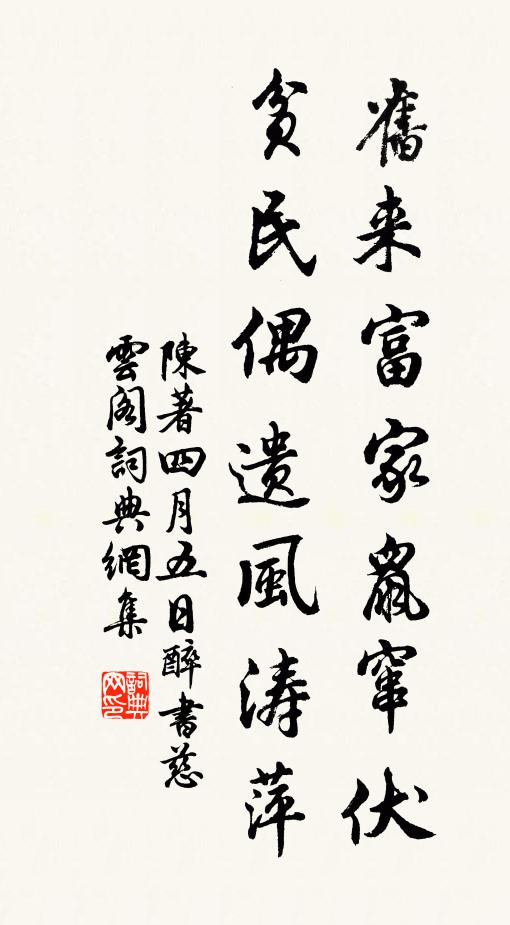 舊来富家鼠窜伏
贫民偶遗風涛萍
陳著四月五日醉書慈
雲阁詞典網集
詞典网印